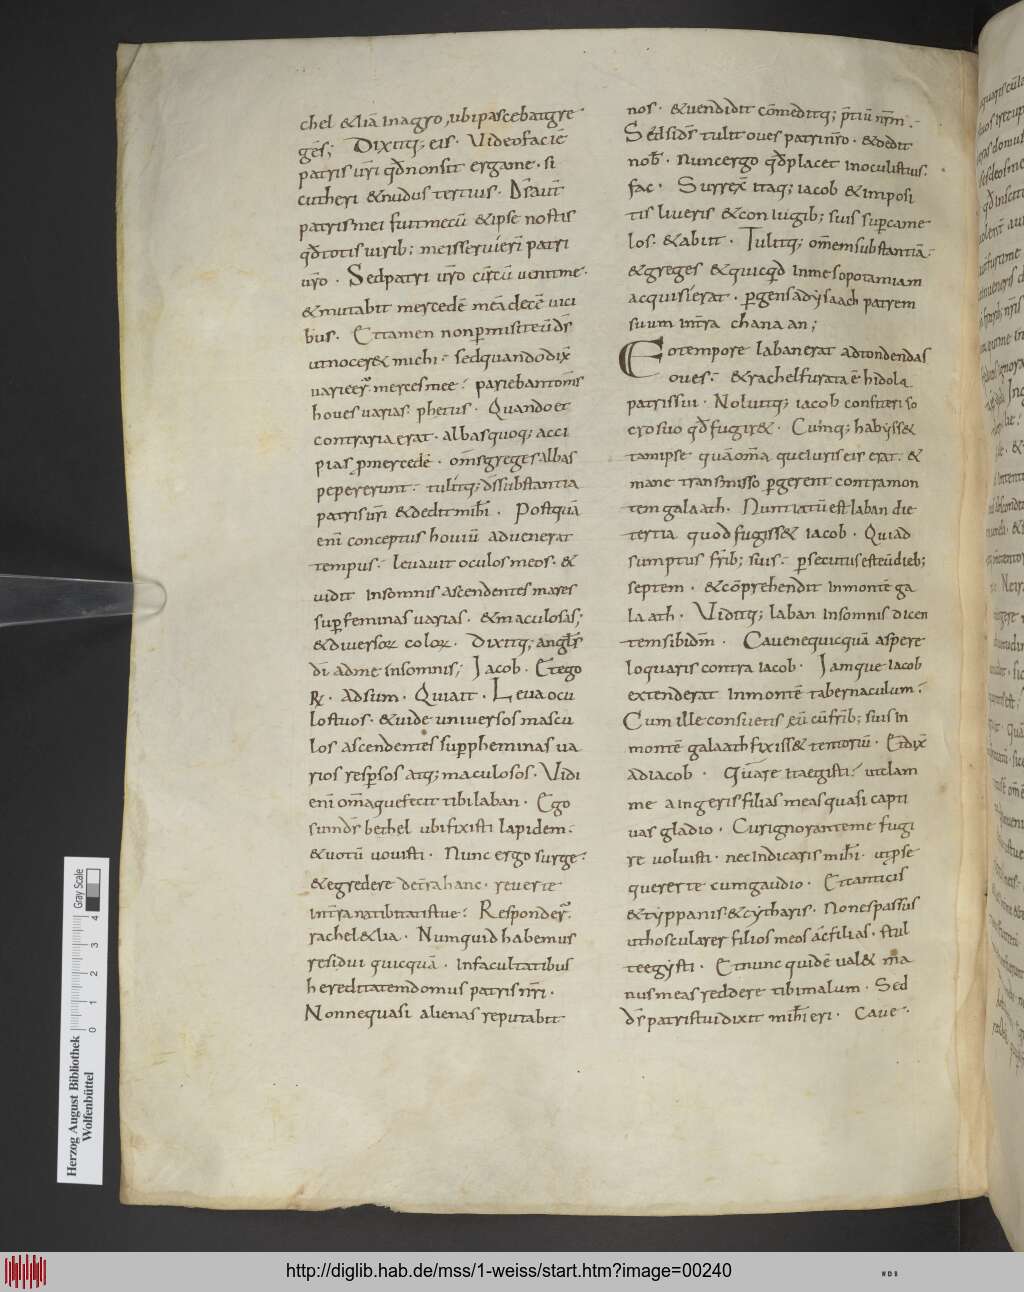 chel &liā inagro, ubi pascebat gre
gēs; Dixitq; eis. Video faciē
patris ur̄i qđ non sit erga me. si
cut heri & nudus tertius. D̄s aut̄
patris mei fuit mecū & ipse nostis
qđ totis uirib; meis seruierī patri
ur̄o. Sed pater ur̄o circū uenit me.
& mutabit mercedē meā decē uici
bus. Et tamen non p̱misit eū d̄s
ut nocer& michi. sed quando dix̄
uarie er̄ mercesmee. pariebant om̄s
houes uarias phetus. Quando et
contraria erat. albas quoq; acci
pias p̱ mercedē. om̄s greges albas
pepererunt. tulitq; d̄s substantia
patris ur̄i & dedit mihi. Postquā
eni conceptus houiū aduenerat
tempus. leuauit oculos meos. &
uidit in somnis ascendentes mares
sup̱ feminas uarias. & maculosas;
& diuersoꝝ coloꝝ. Dixitq; angl̄s
dī ad me in somnis; Jacob. Et ego
R&. Adsum. Qui ait. Leua ocu
los tuos. & uide uniuersos mascu
los ascendentes sup̱ pheminas ua
rios resp̱sos atq; maculosos. Vidi
eni om̄a que fecit tibi laban. Ego
sum d̄s bethel ubi fixisti lapidem.
& uotū uouisti. Nunc ergo surge.
& egredere de tr̄a hanc. reuerte
in tr̄a natibitatis tue. Responder̄
rachel & lia. Numquid habemus
residui quicquā. in facultatibus
hereditatem domus patris nr̄i.
Nonne quasi alienas reputabit
nos. & uendidit cōmeditq; p̄tiū nr̄m.
Sed si d̄s tulit oues patri nr̄o. & dedit
nob̄. nunc ergo qđ placet in oculis tuis.
fac. Surrex̄ itaq; iacob & imposi
tis liueris & coniugib; suis sup̱ came
los. & abiit. Tulitq; om̄em substantiā.
& greges & quicqđ in mesopotamiam
acquisierat. p̱gens ad ysaach patrem
suum in tr̄a chanaan;
Eo tempore laban erat ad tondendas
oues. & rachel furata ē hidola
patris sui. Noluitq; iacob confiteri so
cro suo qđ fugir&. Cumq; habyss&
tam ipse quā om̄a que iuris eis erat. &
mane transmisso p̱gerent contra mon
tem galaath. Nuntiatū est laban die
tertia quod fugiss& iacob. Qui ad
sumptus fr̄ib; suis. p̱secutus est eū dieb;
septem. & cōprehendit in montē ga
laath. Viditq; laban in somnis dicen
tem sibi dm̄. Caue ne quicquā aspere
loquaris contra iacob. Jamque iacob
extenderat in montē tabernaculum.
Cum ille consuetis eū cū fr̄ib; suis in
montē galaath fixiss& tentoriū. Et dix̄
ad iacob. Quare ita egisti. ut clam
me aingeris filias meas quasi capti
uas gladio. Cur ignorante me fugi
re uoluisti. nec indicaris mihi. ut p̱se
querer te cum gaudio. Et canticis
& typpanis & cytharis. Non es passus
ut hoscularer filios meos ac filias. stul
te egysti. Et nunc quidē ual& ma
nus meas reddere tibi malum. Sed
d̄s patris tui dixit mihi eri. Caue.
Herzog August Bibliothek
Wolfenbüttel
0 1 2 3 4
Gray Scale
http://diglib.hab.de/mss/1-weiss/start.htm?image=00240